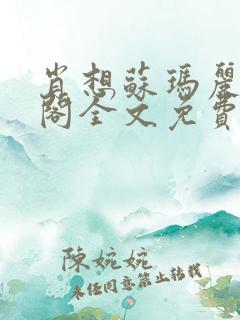 肖想蘇瑪麗
閣全文免費
陳婉婉
未任同意禁止轉載